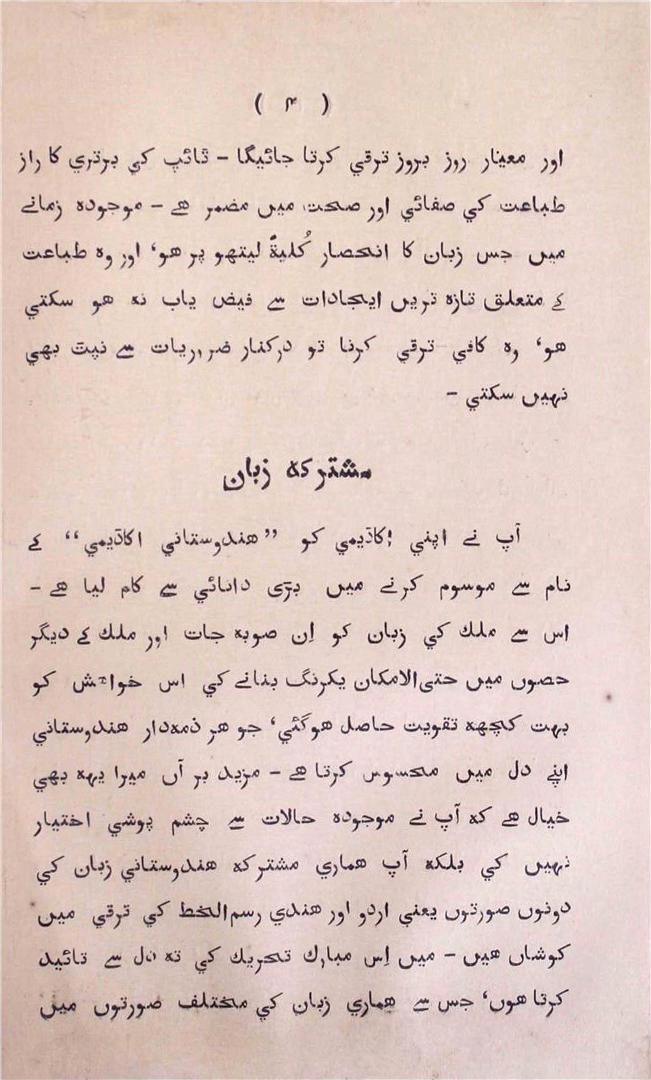 ( ۴ )
اور معیار روز بروز ترقي کرتا جائیگا - ٹائپ کي برتري کا راز
طباعت کي صفائي اور صحت میں مضمر ھے - موجودہ زمانے
میں جس زبان کا انحصار کُلیةً لیتھو پر ھو، اور وہ طباعت
کے متعلق تازہ تریں ایجادات سے فیض یاب نہ ھو سکتي
ھو، وہ کافي ترقي کرنا تو درکنار ضروریات سے نپٹ بھي
نہیں سکتي -
مشترکہ زبان
آپ نے اپني اکاڈیمي کو ”ھندوستاني اکاڈیمي“ کے
نام سے موسوم کرنے میں بڑی دانائي سے کام لیا ھے -
اس سے ملک کي زبان کو اِن صوبہ جات اور ملک کے دیگر
حصوں میں حتی‌الامکان یکرنگ بنانے کي اس خواھش کو
بہت کچھہ تقویت حاصل ھوگئي، جو ھر ذمہ‌دار ھندوستاني
اپنے دل میں محسوس کرتا ھے - مزید بر آں میرا یہہ بھي
خیال ھے کہ آپ نے موجودہ حالات سے چشم پوشي اختیار
نہیں کي بلکہ آپ ھماري مشترکہ ھندوستاني زبان کي
دونوں صورتوں یعني اردو اور ھندي رسم‌الخط کي ترقي میں
کوشاں ھیں - میں اِس مبارک تحریک کي تہ دل سے تائید
کرتا ھوں، جس سے ھماري زبان کي مختلف صورتوں میں